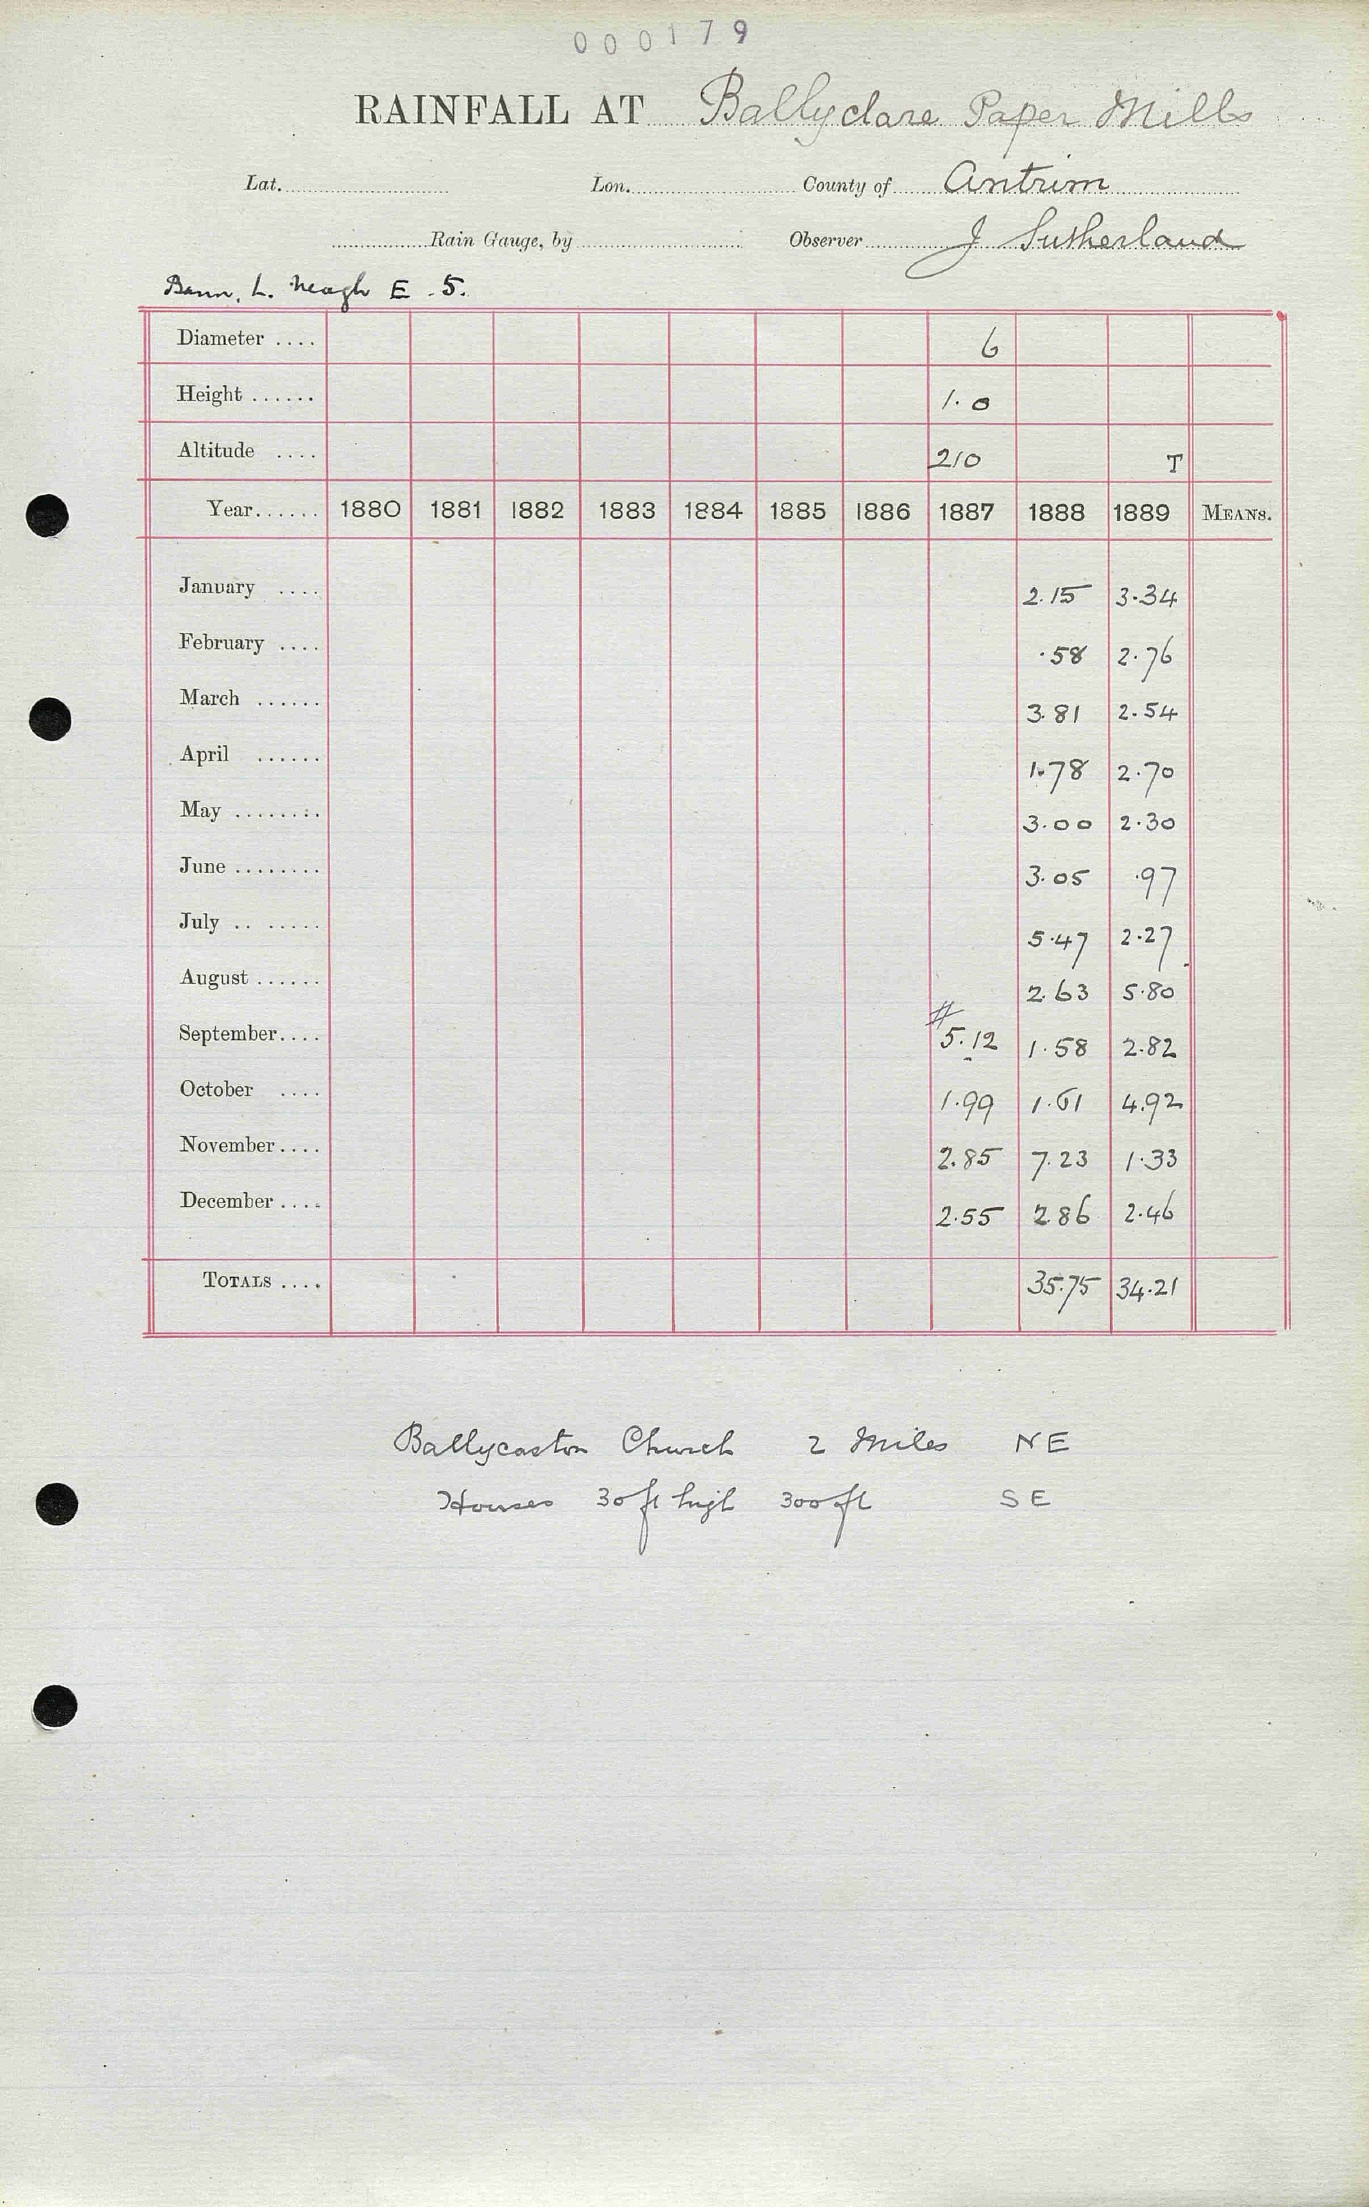 000179
RAINFALL AT Ballyclare Paper Mills
Lat. Lon. County of Antrim
Rain Gauge, by Observer J Sutherland
Bann, L. Neagh E .5.
Diameter .... 6
Height ...... 1.0
Altitude .... 210 T
Year...... 1880 1881 1882 1883 1884 1885 1886 1887 1888 1889 MEANS.
January .... 2.15 3.34
February .... .58 2.76
March ...... 3.81 2.54
April ...... 1.78 2.70
May ........ 3.00 2.30
June ........ 3.05 .97
July .. ..... 5.47 2.27
August ...... 2.63 5.80
September.... # 5.12 1.58 2.82
October .... 1.99 1.61 4.92
November.... 2.85 7.23 1.33
December.... 2.55 2.86 2.46
TOTALS .... 35.75 34.21
Ballycaston Church 2 Miles NE
Houses 30 ft high 300 ft SE